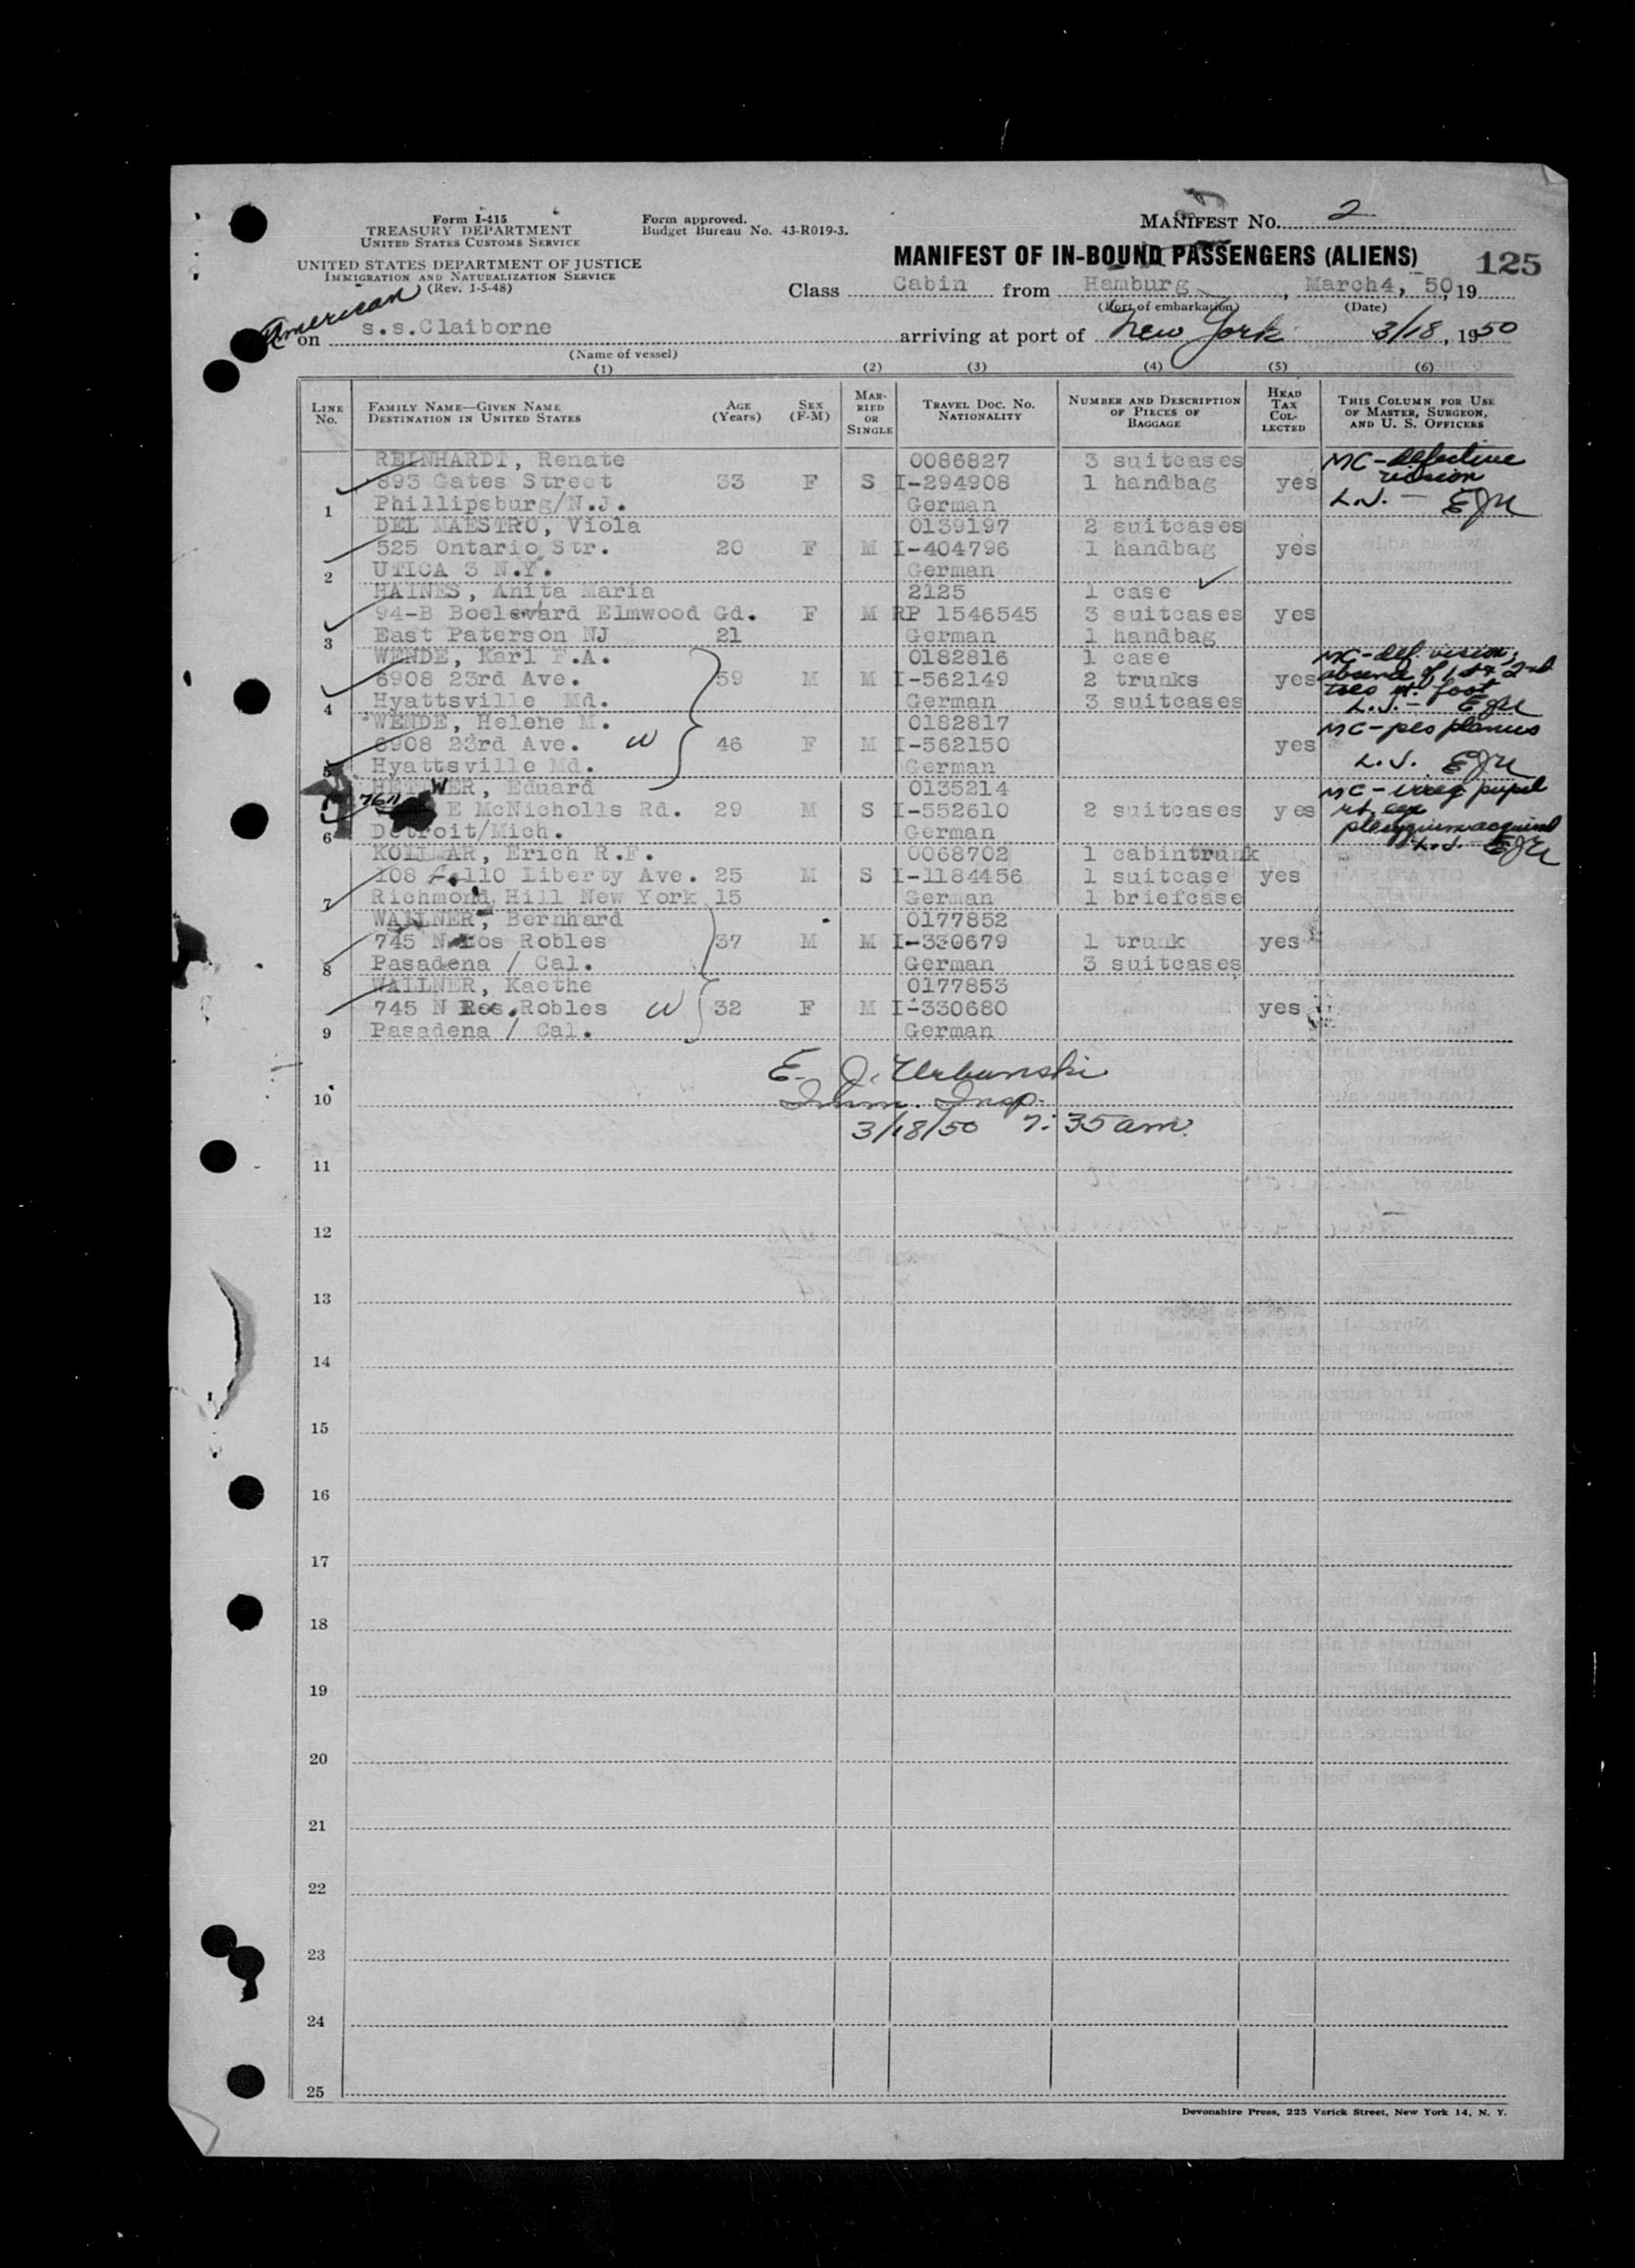 Form I-415
TREASURY DEPARTMENT
UNITED STATES CUSTOMS SERVICE
UNITED STATES DEPARTMENT OF JUSTICE
IMMIGRATION AND NATURALIZATION SERVICE
(Rev. 1-5-48)
Form approved.
Budget Bureau No. 43-R019-3.
MANIFEST No. 2
MANIFEST OF IN-BOUND PASSENGERS (ALIENS)
125
Class Cabin from Hamburg, March4, 50, 19
(Port of embarkation) (Date)
American
on s.s.Claiborne arriving at port of New York 3/18, 1950
(Name of vessel)
(1) (2) (3) (4) (5) (6)
LINE No. FAMILY NAME—GIVEN NAME DESTINATION IN UNITED STATES AGE (Years) SEX (F-M) MARRIED OR SINGLE TRAVEL DOC. NO. NATIONALITY NUMBER AND DESCRIPTION OF PIECES OF BAGGAGE HEAD TAX COLLECTED THIS COLUMN FOR USE OF MASTER, SURGEON, AND U. S. OFFICERS
REINHARDT, Renate 0086827 3 suitcases MC-defective
893 Gates Street 33 F S I-294908 1 handbag yes vision
1 Phillipsburg/N.J. German L.J. - EJU
DEL MAESTRO, Viola 0139197 2 suitcases
525 Ontario Str. 20 F M I-404796 1 handbag yes
2 UTICA 3 N.Y. German
HAINES, Anita Maria 2125 1 case
94-B Boelevard Elmwood Gd. F M RP 1546545 3 suitcases yes
3 East Paterson NJ 21 German 1 handbag
WENDE, Karl F.A. 0182816 1 case MC-def. vision;
6908 23rd Ave. 59 M M I-562149 2 trunks yes absence of 1st & 2nd
toes rt. foot
4 Hyattsville Md. German 3 suitcases L.J. - EJU
WENDE, Helene M. 0182817 MC-pes planus
6908 23rd Ave. W 46 F M I-562150 yes
5 Hyattsville Md. German L.J. EJU
HETTWER, Eduard 0135214 MC-irreg pupil
7611 E McNicholls Rd. 29 M S I-552610 2 suitcases yes rt. eye
6 Detroit/Mich. German L.J. EJU
KOLLAR, Erich R.F. 0068702 1 cabintrunk
108 110 Liberty Ave. 25 M S I-1184456 1 suitcase yes
7 Richmond Hill New York 15 German 1 briefcase
WALLNER, Bernhard 0177852
745 N Los Robles 37 M M I-330679 1 trunk yes
8 Pasadena / Cal. German 3 suitcases
WALLNER, Kaethe 0177853
745 N Ros. Robles W 32 F M I-330680 yes
9 Pasadena / Cal. German
E. J. Urbanski
10 Imm. Insp.
3/18/50 7:35 am.
11
12
13
14
15
16
17
18
19
20
21
22
23
24
25
Devonshire Press, 225 Varick Street, New York 14, N. Y.